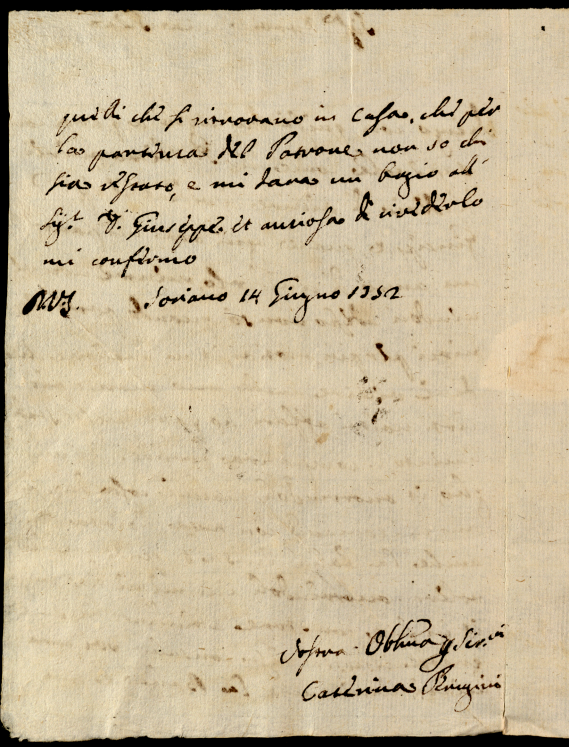 quelli che si ritrovano in Casa, che per
la partenza del Patrone non so chi
sia restato, e mi dara un bagio all
Sig.r D. Giuseppe, et ansiosa di rivederlo
mi confermo
Soriano 14 Giugno 1752
Obl.ma
Caterina Perugini